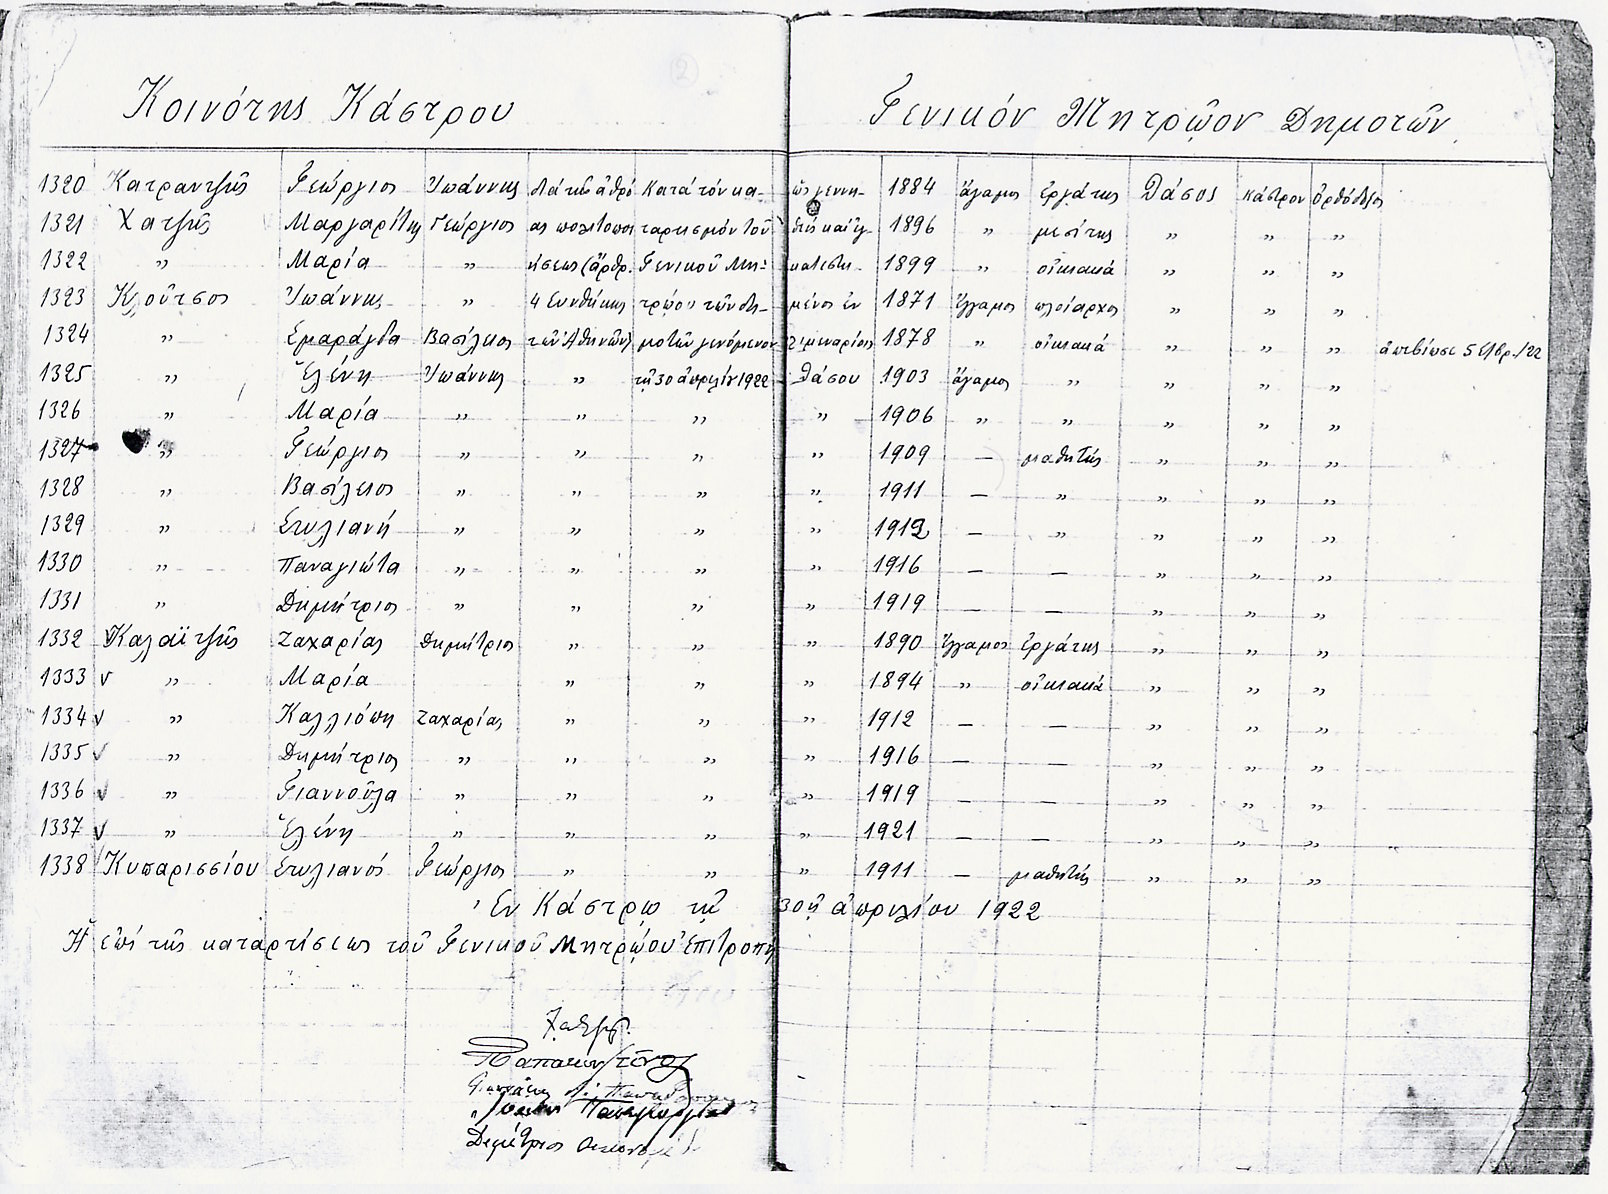 (2)
Κοινότης Κάστρου Γενικόν Μητρῷον Δημοτῶν
1320 Κατραντζῆς Γεώργιος Ἰωάννης διὰ τῆς ἀθρό Κατὰ τὸν κα- ὡς γεννη- 1884 ἄγαμος ἐργάτης Θάσος Κάστρον ὀρθόδοξος
1321 Χατζῆς Μαργαρίτης Γεώργιος ας πολιτοποι ταρτισμὸν τοῦ θεὶς καὶ ἐγ- 1896 „ μεσίτης „ „ „
1322 „ Μαρία „ ήσεως (ἄρθρ. Γενικοῦ Μη- κατεστη- 1899 „ οἰκιακά „ „ „
1323 Κλοῦτσος Ἰωάννης „ 4 Συνθήκης τρώου τῶν δη- μένος ἐν 1871 ἔγγαμος πλοίαρχος „ „ „
1324 „ Σμαράγδα Βασίλειος τῶν Ἀθηνῶν) μοτῶν γενόμενον Λιμεναρίοις 1878 „ οἰκιακά „ „ „ ἀπεβίωσε 5 /22
1325 „ Ἑλένη Ἰωάννης „ τῇ 30 ἀπριλίου 1922 Θάσου 1903 ἄγαμος „ „ „ „
1326 „ Μαρία „ „ „ „ 1906 „ „ „ „ „
1327 „ Γεώργιος „ „ „ „ 1909 — μαθητής „ „ „
1328 „ Βασίλειος „ „ „ „ 1911 — „ „ „ „
1329 „ Στυλιανή „ „ „ „ 1912 — „ „ „ „
1330 „ Παναγιώτα „ „ „ „ 1916 — — „ „ „
1331 „ Δημήτριος „ „ „ „ 1919 — — „ „ „
1332 Καλαϊτζῆς Ζαχαρίας Δημήτριος „ „ „ 1890 ἔγγαμος ἐργάτης „ „ „
1333 „ Μαρία „ „ „ 1894 „ οἰκιακά „ „ „
1334 „ Καλλιόπη Ζαχαρίας „ „ „ 1912 — — „ „ „
1335 „ Δημήτριος „ „ „ „ 1916 — — „ „ „
1336 „ Γιαννοῦλα „ „ „ „ 1919 — — „ „ „
1337 „ Ἑλένη „ „ „ „ 1921 — — „ „ „
1338 Κυπαρισσίου Στυλιανός Γεώργιος „ „ „ 1911 — μαθητής „ „ „
Ἐν Κάστρῳ τῇ 30ῇ ἀπριλίου 1922
Ἡ ἐπὶ τῆς καταρτίσεως τοῦ Γενικοῦ Μητρῴου Ἐπιτροπή
Δημήτριος